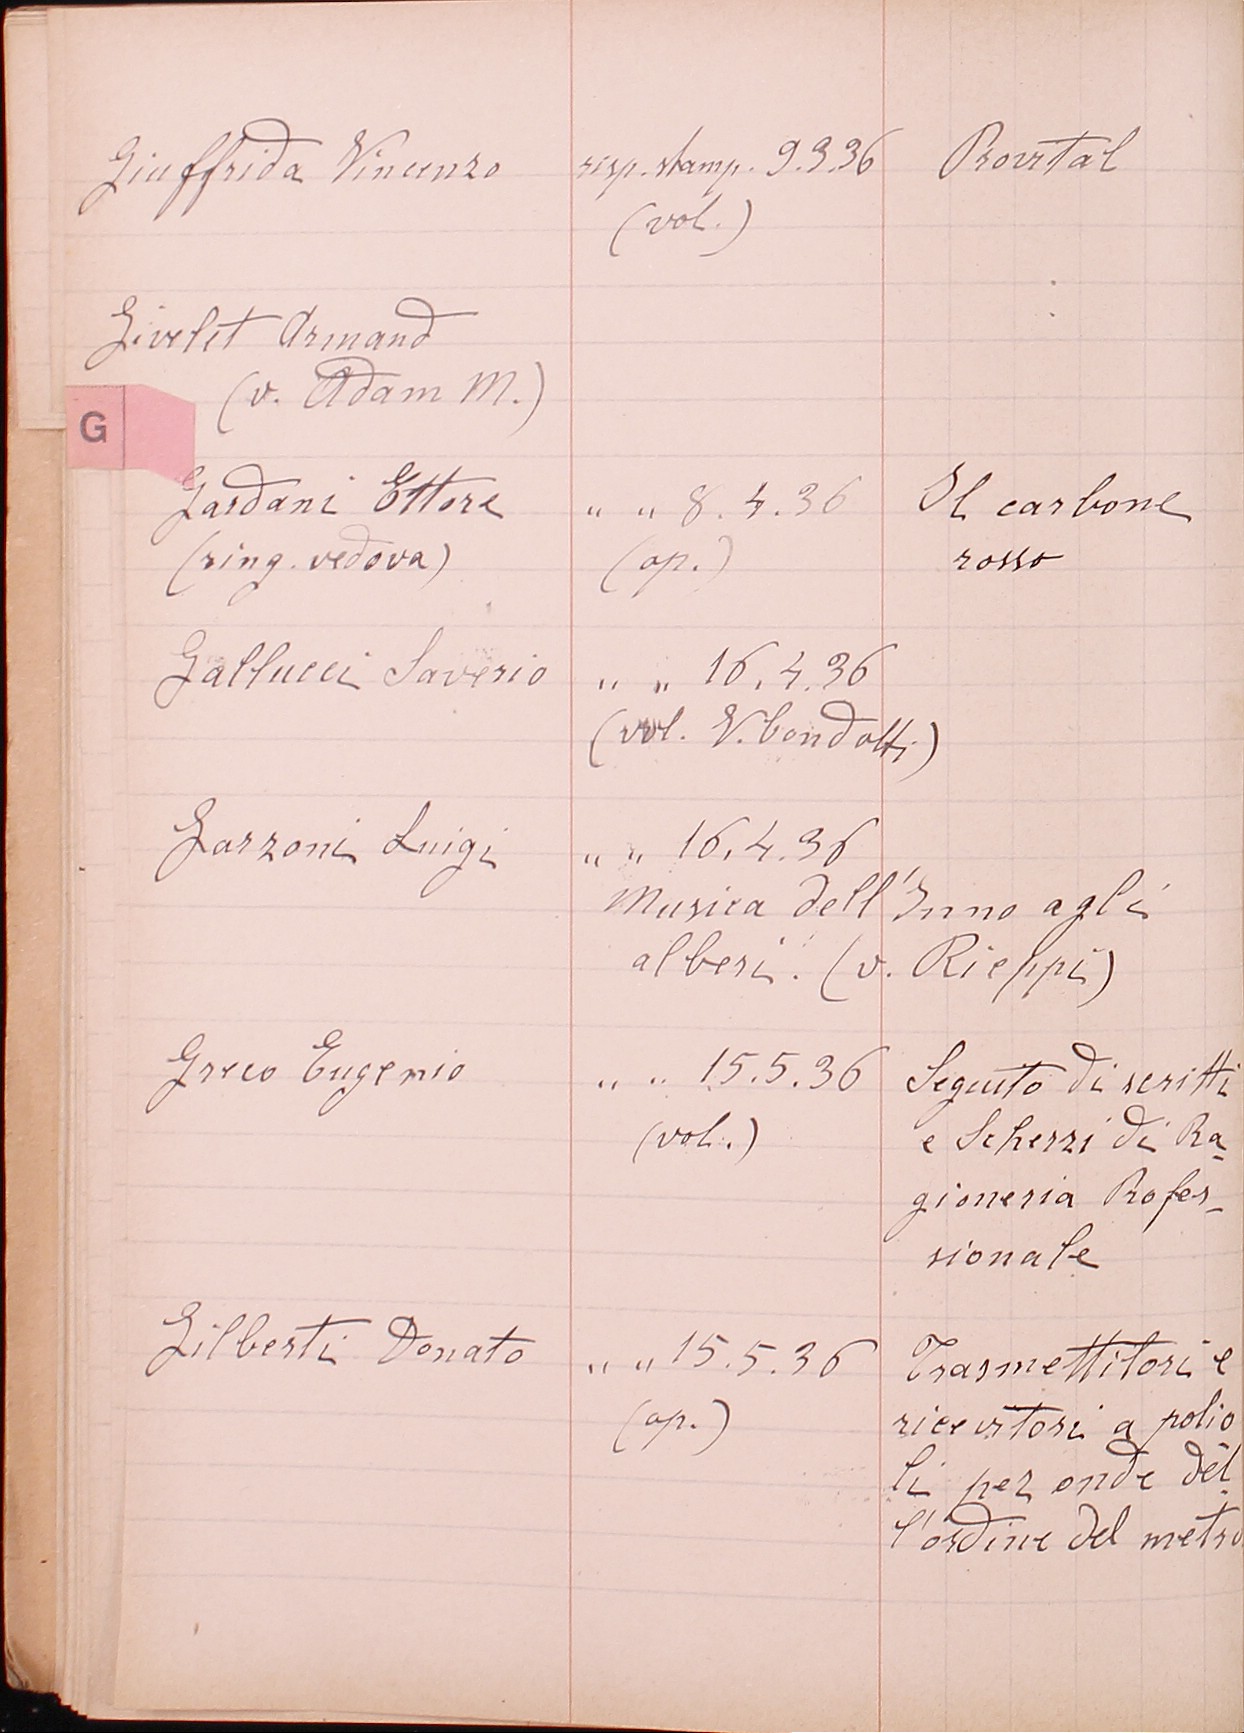 Giuffrida Vincenzo risp. stamp. 9.3.36 Provital
(vol.)
Givelet Armand
(v. Adam M.)
G
Gardani Ettore " " 8.4.36 Il carbone
(ring. vedova) (op.) rosso
Gallucci Saverio " " 16.4.36
(vol. V. bondotti)
Garzoni Luigi " " 16.4.36
Musica dell'Inno agli
alberi. (v. Rieppi)
Greco Eugenio " " 15.5.36 Seguito di scritti
(vol.) e Scherzi di Ra-
gioneria Profes-
sionale
Gilberti Donato " " 15.5.36 Trasmettitori e
(op.) ricevitori a polio
li per onde del-
l'ordine del metro